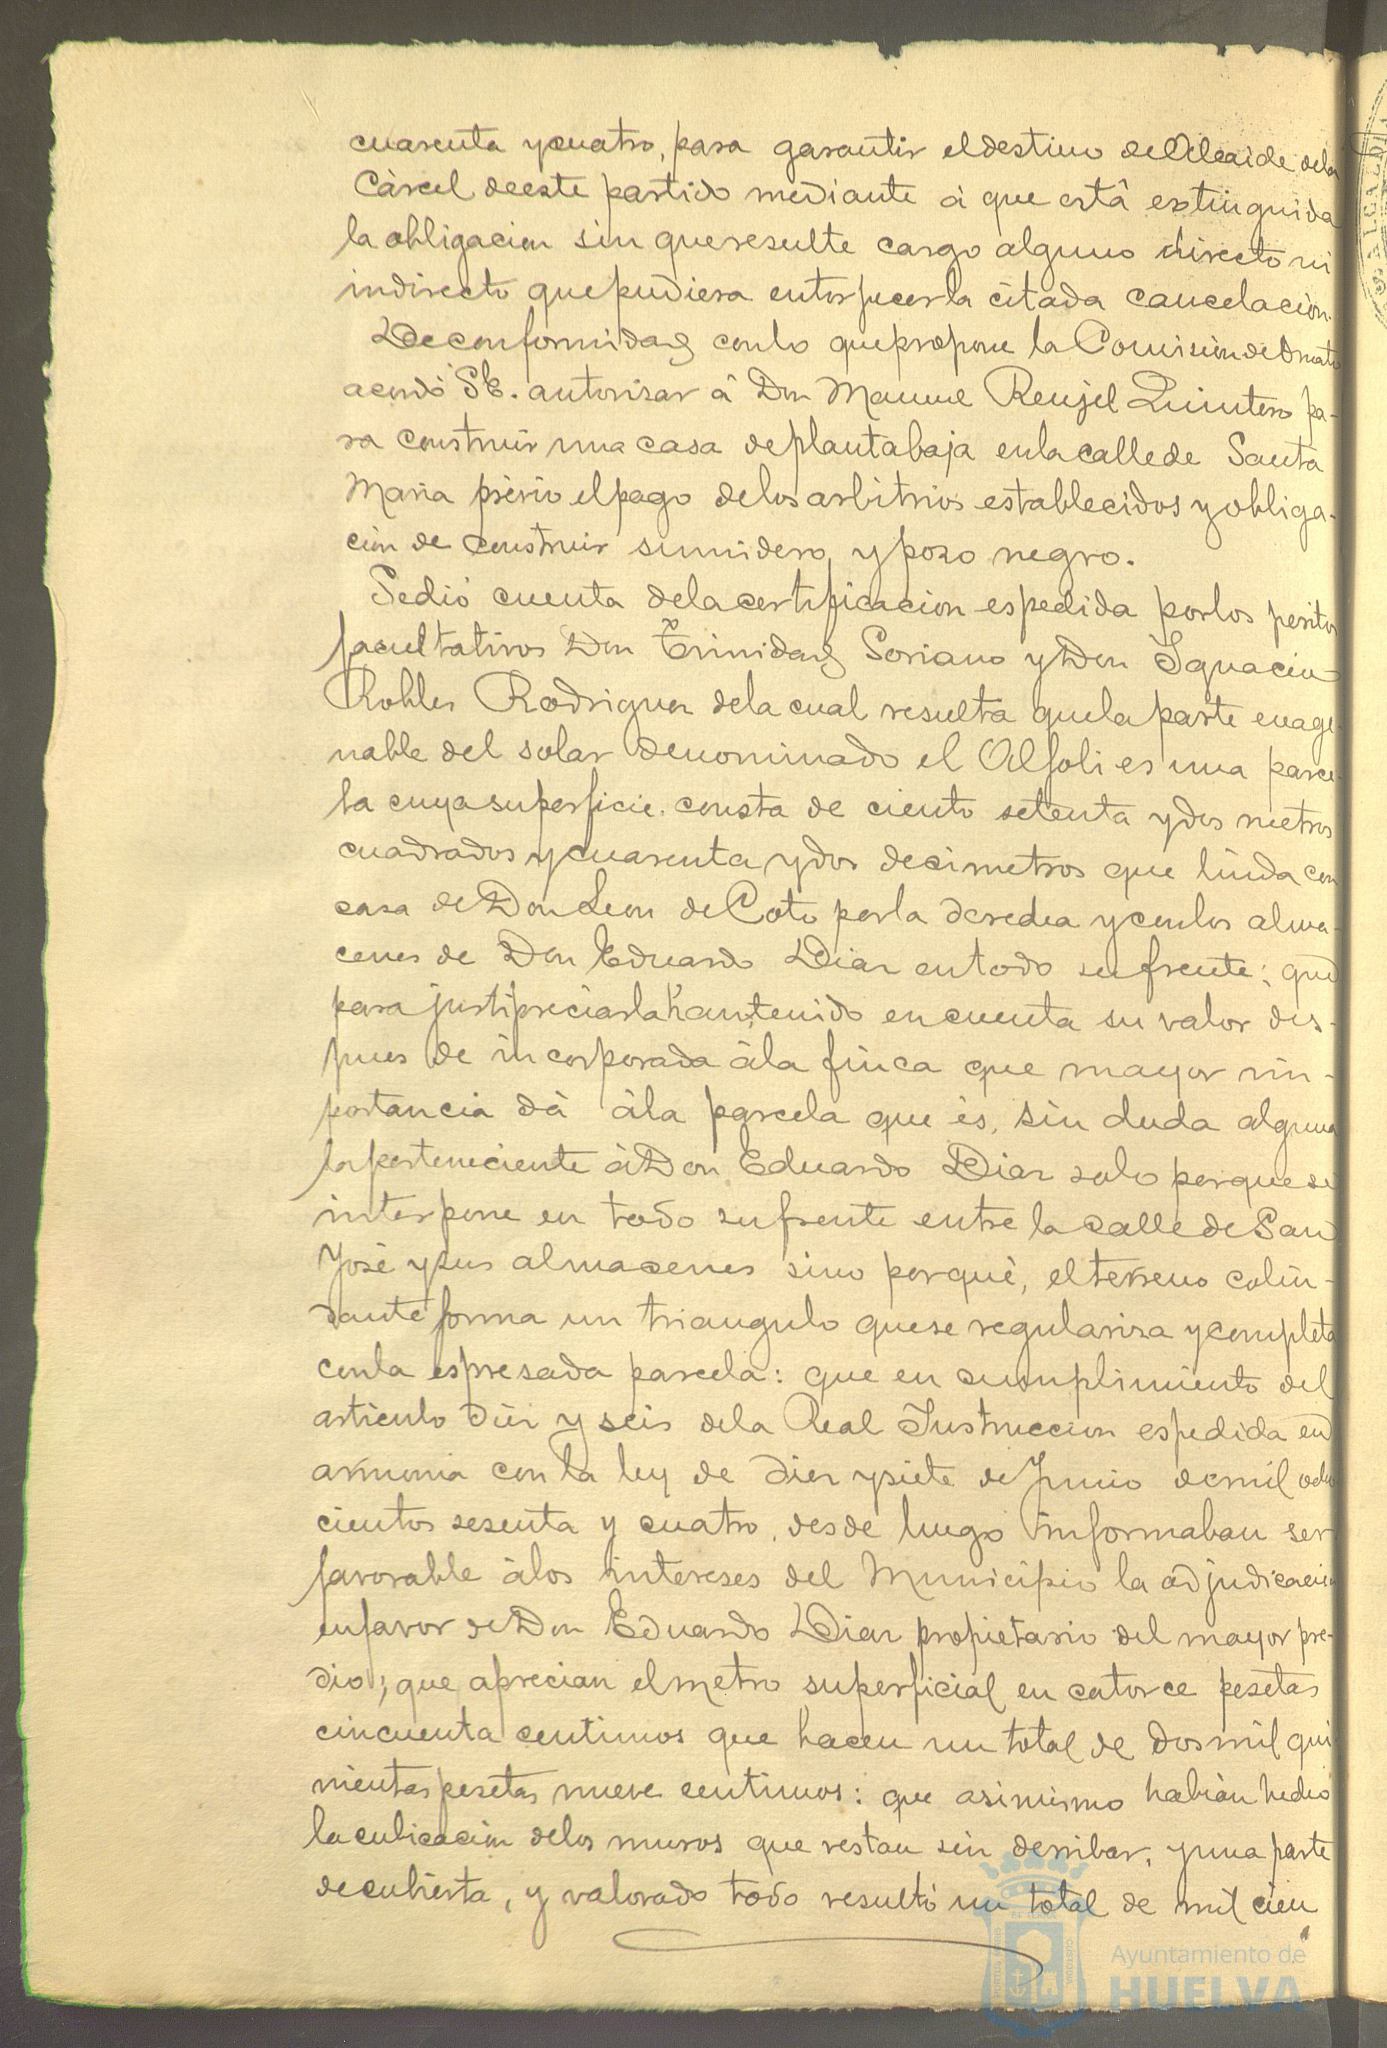 cuarenta y cuatro, para garantir el destino de Alcaide de la
Càrcel de este partido mediante à que està extinguida
la obligacion sin que resulte cargo alguno directo ni
indirecto que pudiera entorpecer la citada cancelacion.
De conformidad con lo que propone la Comision de Ornato
acordó S.E. autorizar à Don Manuel Renjel Quintero pa-
ra construir una casa de planta baja en la calle de Santa
Maria prèvio el pago de los arbitrios establecidos y obliga-
cion de construir sumidero y pozo negro.
Se dió cuenta de la certificacion espedida por los peritos
facultativos Don Trinidad Soriano y Don Ignacio
Robles Rodriguez de la cual resulta que la parte enage
nable del solar denominado el Alfoli es una parce-
la cuya superficie consta de ciento setenta y dos metros
cuadrados y cuarenta y dos decimetros que linda con
casa de Don Leon de Coto por la derecha y con los alma-
cenes de Don Eduardo Diaz en todo su frente; que
para justipreciarla han tenido en cuenta su valor des-
pues de incorporada à la finca que mayor im-
portancia dà à la parcela que ès, sin duda alguna
la perteneciente à Don Eduardo Diaz solo porque se
interpone en todo su frente entre la calle de San
José y sus almacenes sino porquè, el terreno colin-
dante forma un triangulo que se regulariza y completa
con la espresada parcela: que en cumplimiento del
articulo diez y seis de la Real Instruccion espedida en
armonia con la ley de diez y siete de Junio de mil ocho
cientos sesenta y cuatro, desde luego informaban ser
favorable à los intereses del Municipio la adjudicacion
en favor de Don Eduardo Diaz propietario del mayor pre-
dio; que aprecian el metro superficial en catorce pesetas
cincuenta centimos que hacen un total de dos mil qui
nientas pesetas nueve centimos: que asimismo habian hecho
la cubicacion de los muros que restan sin derribar, y una parte
de cubierta, y valorado todo resultó un total de mil cien
Ayuntamiento de
HUELVA
ALCALDIA